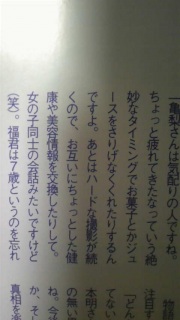 亀梨さんは気配りの人ですね。
ちょっと疲れてきたなっていう絶
妙なタイミングでお菓子とかジュ
ースをさりげなくくれたりするん
ですよ。あとはハードな撮影が続
くので、お互いにちょっとした健
康や美容情報を交換したりして。
女の子同士の会話みたいですけど
(笑)。福君は7歳というのを忘れ
物語
注目す
てない
「どん
本明さ
の無い
ね。今
か、そ
真相を